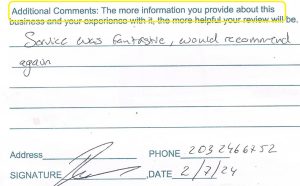 Additional Comments: The more information you provide about this
business and your experience with it, the more helpful your review will be.
Service was fantastic, would recommend
again
Address PHONE 2032466752
SIGNATURE DATE 2/7/24